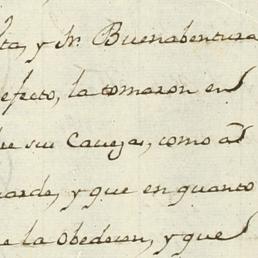 ta, y Sr. Buenabentura
efecto, la tomaron en
re sus Cavezas, como a
uarde, y que en quanto
e la obedecen, y que